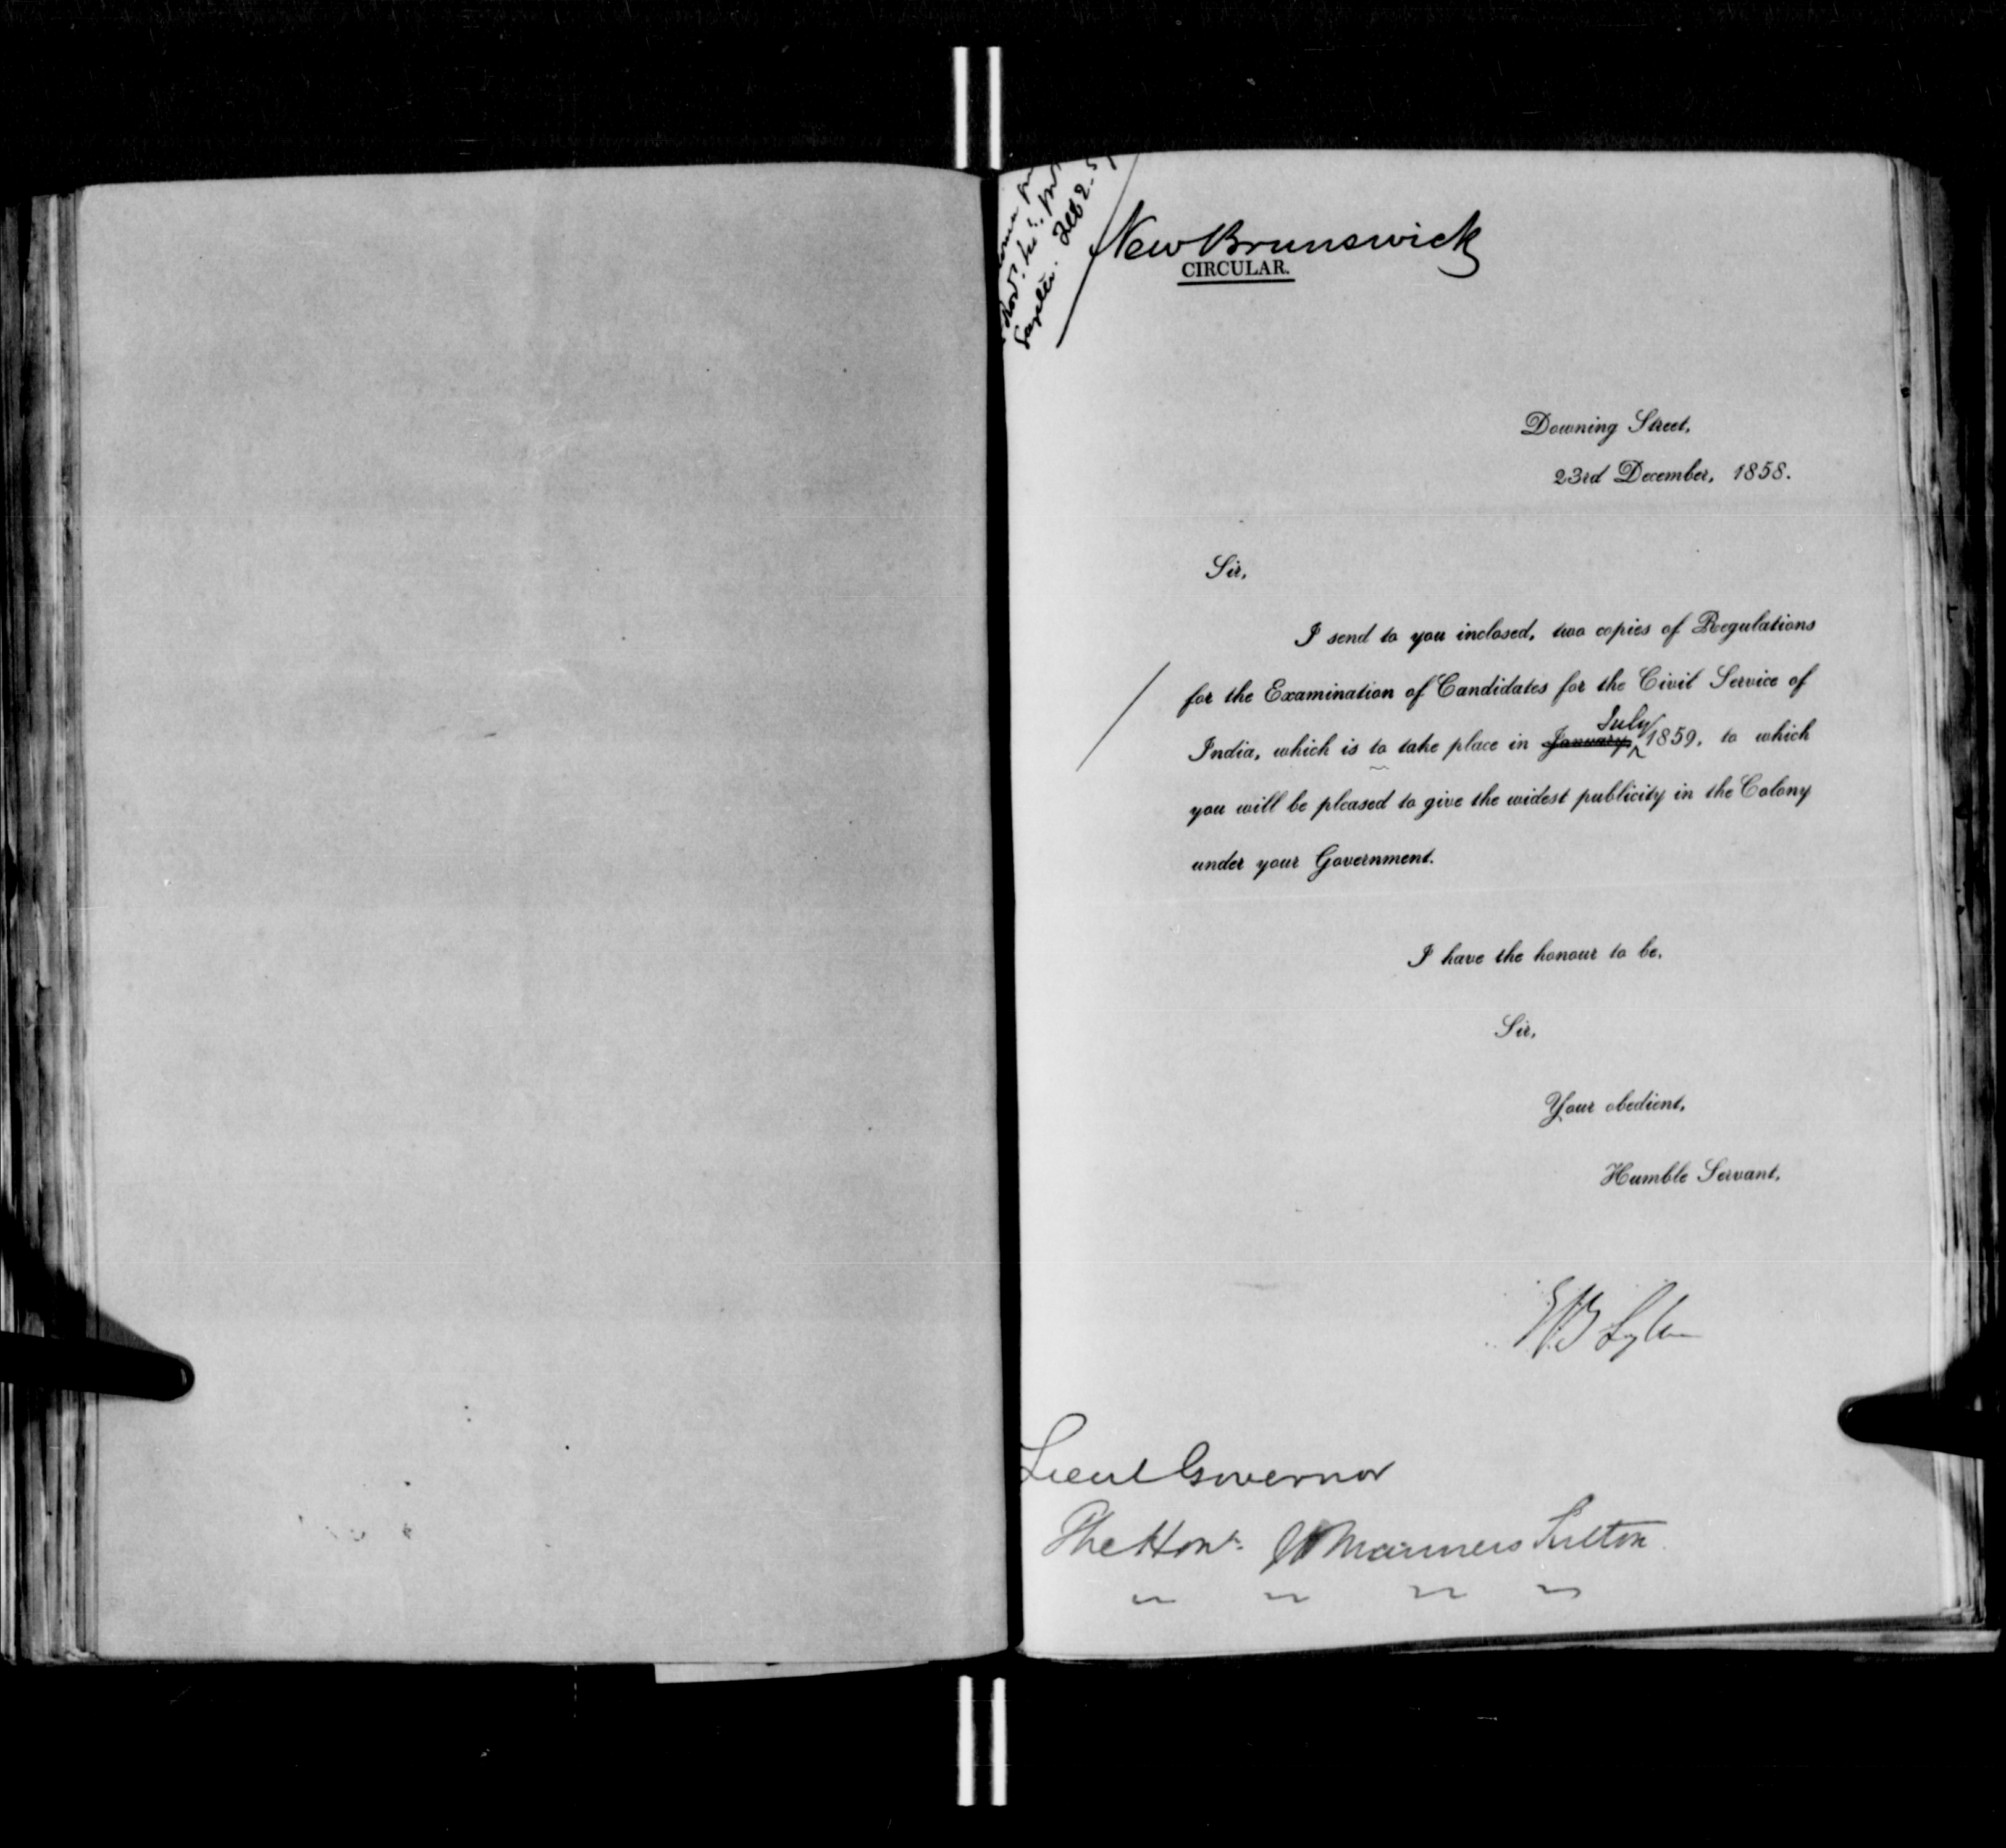 Feb 2.
New Brunswick
CIRCULAR.
Downing Street,
23rd December, 1858.
Sir,
I send to you inclosed, two copies of Regulations
for the Examination of Candidates for the Civil Service of
July
India, which is to take place in January, 1859, to which
you will be pleased to give the widest publicity in the Colony
under your Government.
I have the honour to be,
Sir,
Your obedient,
Humble Servant,
EB Lytton
Lieut Governor
The Honble J H Manners Sutton